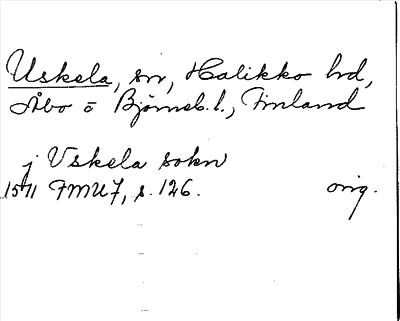 Uskela, sn, Halikko hd,
Åbo o Björneb. l., Finland
j Vskela sokn
1511 FMU 7, s. 126. orig.